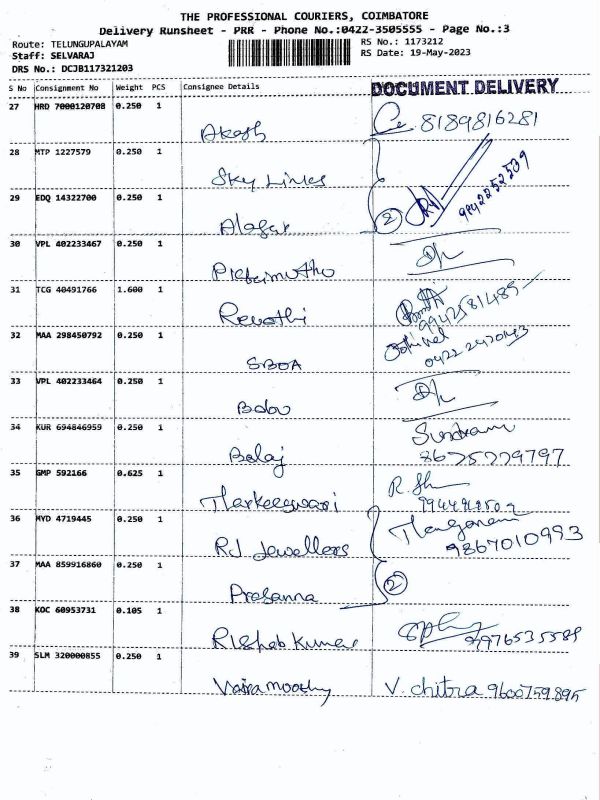 THE PROFESSIONAL COURIERS, COIMBATORE
Delivery Runsheet - PRR - Phone No.:0422-3505555 - Page No.:3
Route: TELUNGUPALAYAM
RS No.: 1173212
Staff: SELVARAJ
RS Date: 19-May-2023
DRS No.: DCJB117321203
S No Consignment No Weight PCS Consignee Details DOCUMENT DELIVERY
27 HRD 7000120708 0.250 1
Akash 8189816281
28 MTP 1227579 0.250 1
Sky Lines
29 EDQ 14322700 0.250 1
2 9842252539
30 VPL 402233467 0.250 1
31 TCG 40491766 1.600 1
Revathi 9942581485
32 MAA 298450792 0.250 1
SBOA
33 VPL 402233464 0.250 1
Babu
34 KUR 694846959 0.250 1
Balaj 8675779797
35 GMP 592166 0.625 1
Tharkeeswari R.
36 MYD 4719445 0.250 1
RJ Jewellers 9867010993
37 MAA 859916860 0.250 1
Prasanna 2
38 KOC 60953731 0.105 1
Rishab Kumar
39 SLM 320000855 0.250 1
Vairamoorthy V. chitra 9600759895